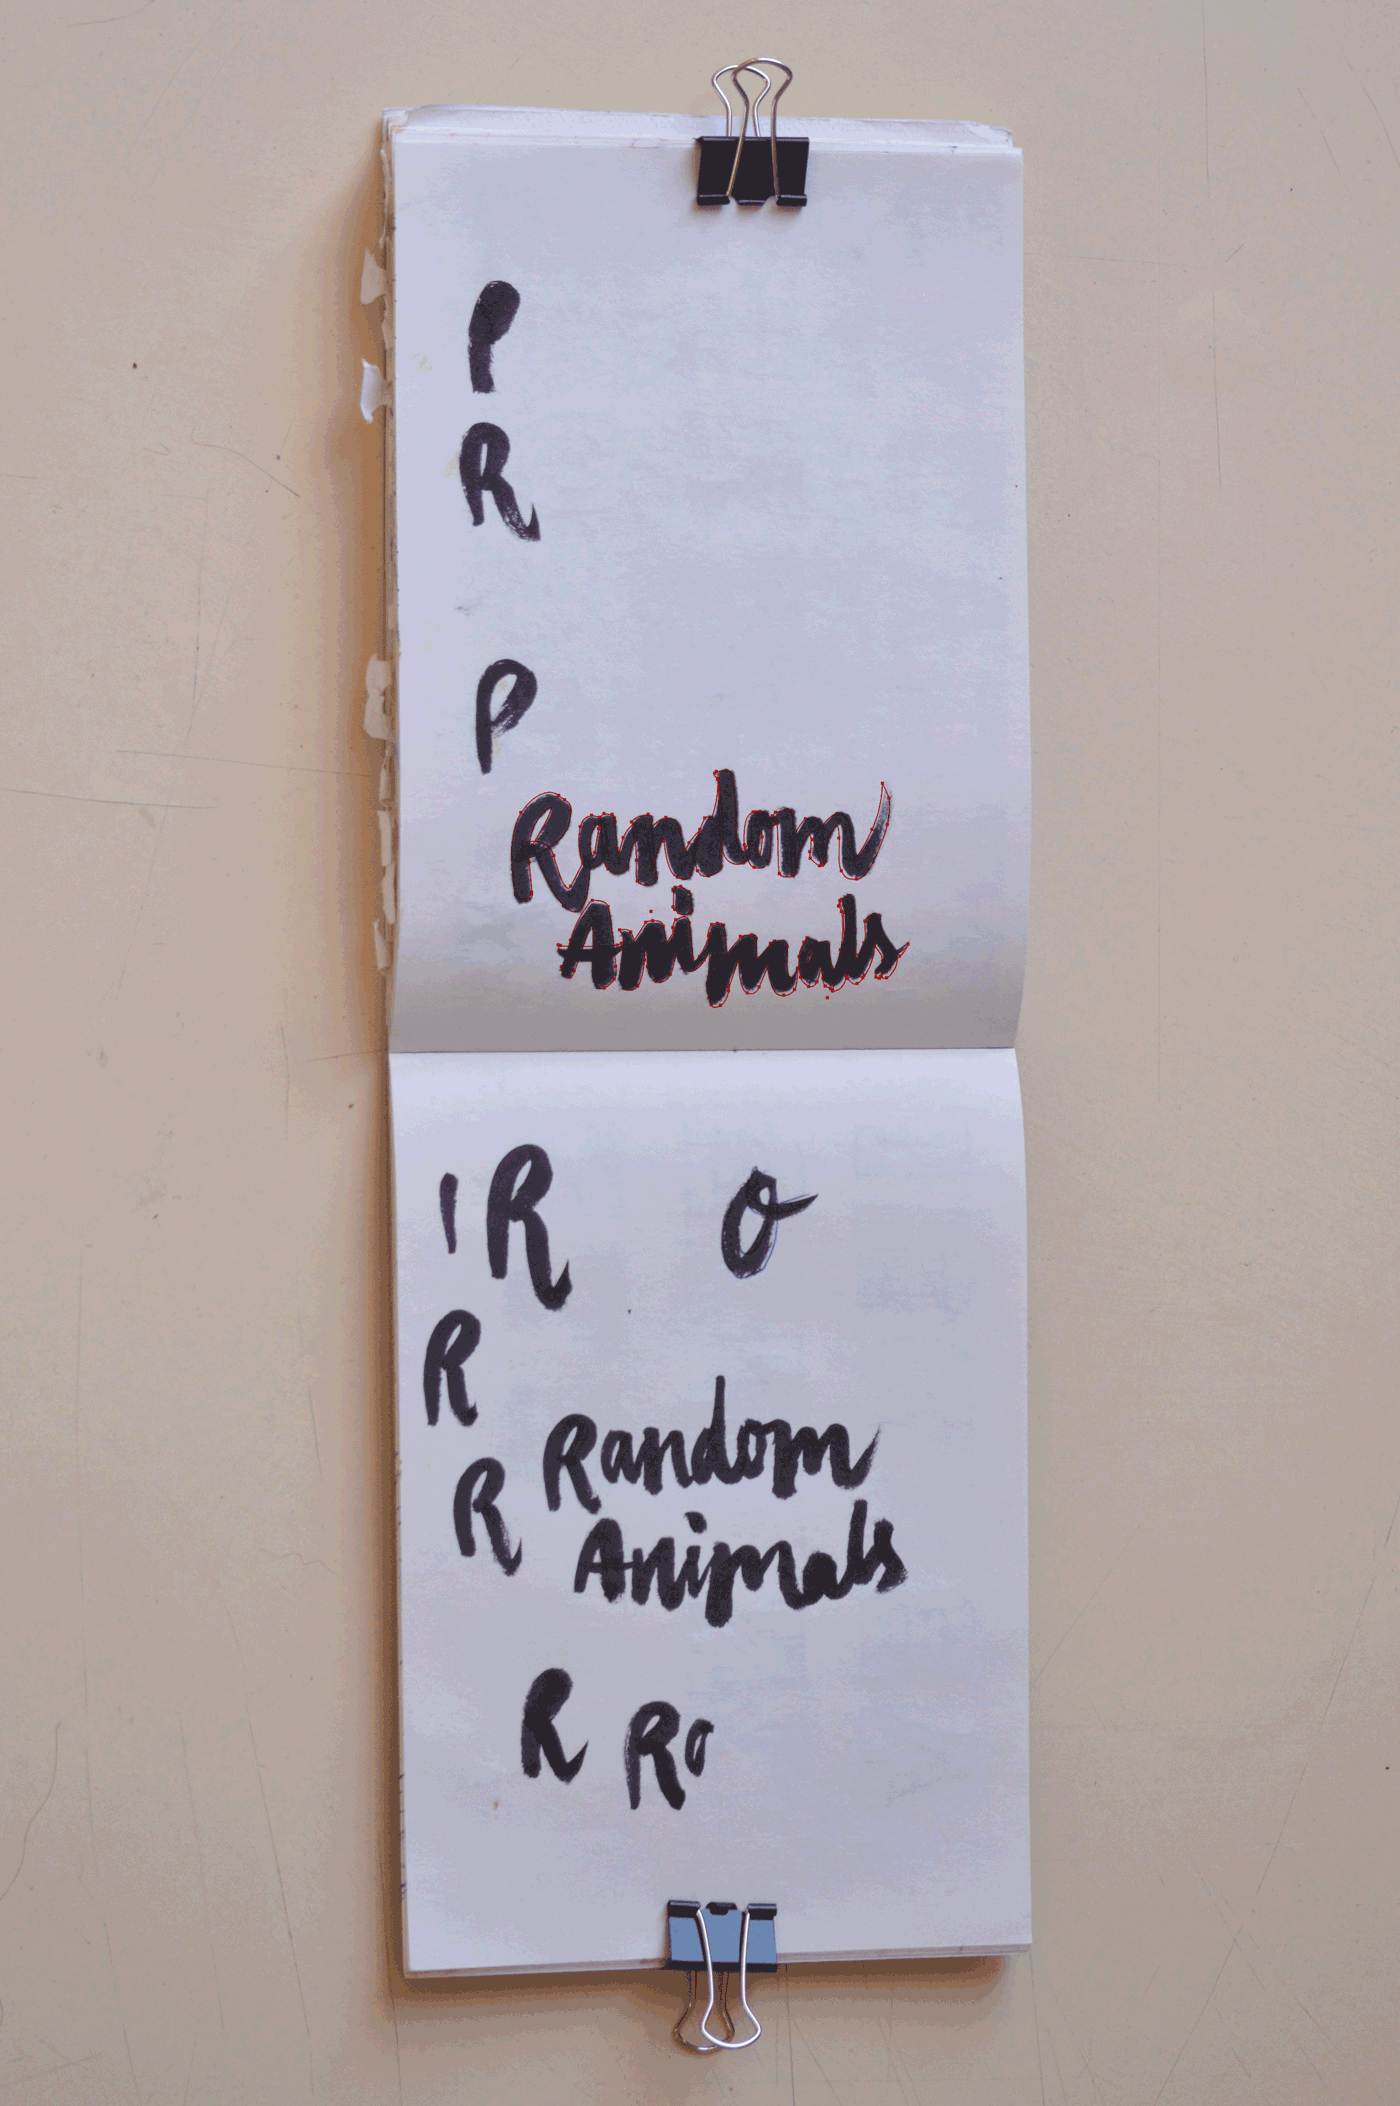 P
R
P
Random
Animals
I R O
R
Random
R
Animals
R Ro